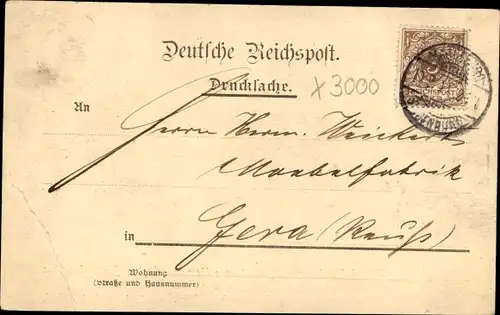 Deutsche Reichspost.
Drucksache.
X 3000
An
Herrn Herm. Weickert
Moebelfabrik
in Gera (Reuß)
Wohnung
(Straße und Hausnummer)
3
REICHSPOST